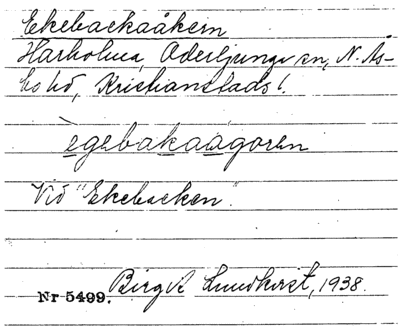 Ekebackaåkern
Harholma, Oderljunga sn, N. Ås-
bo hd, Kristianstads l.
ègebakaågoren
Vid "Ekebacken".
Nr 5499. Birgit Lundkvist, 1938.